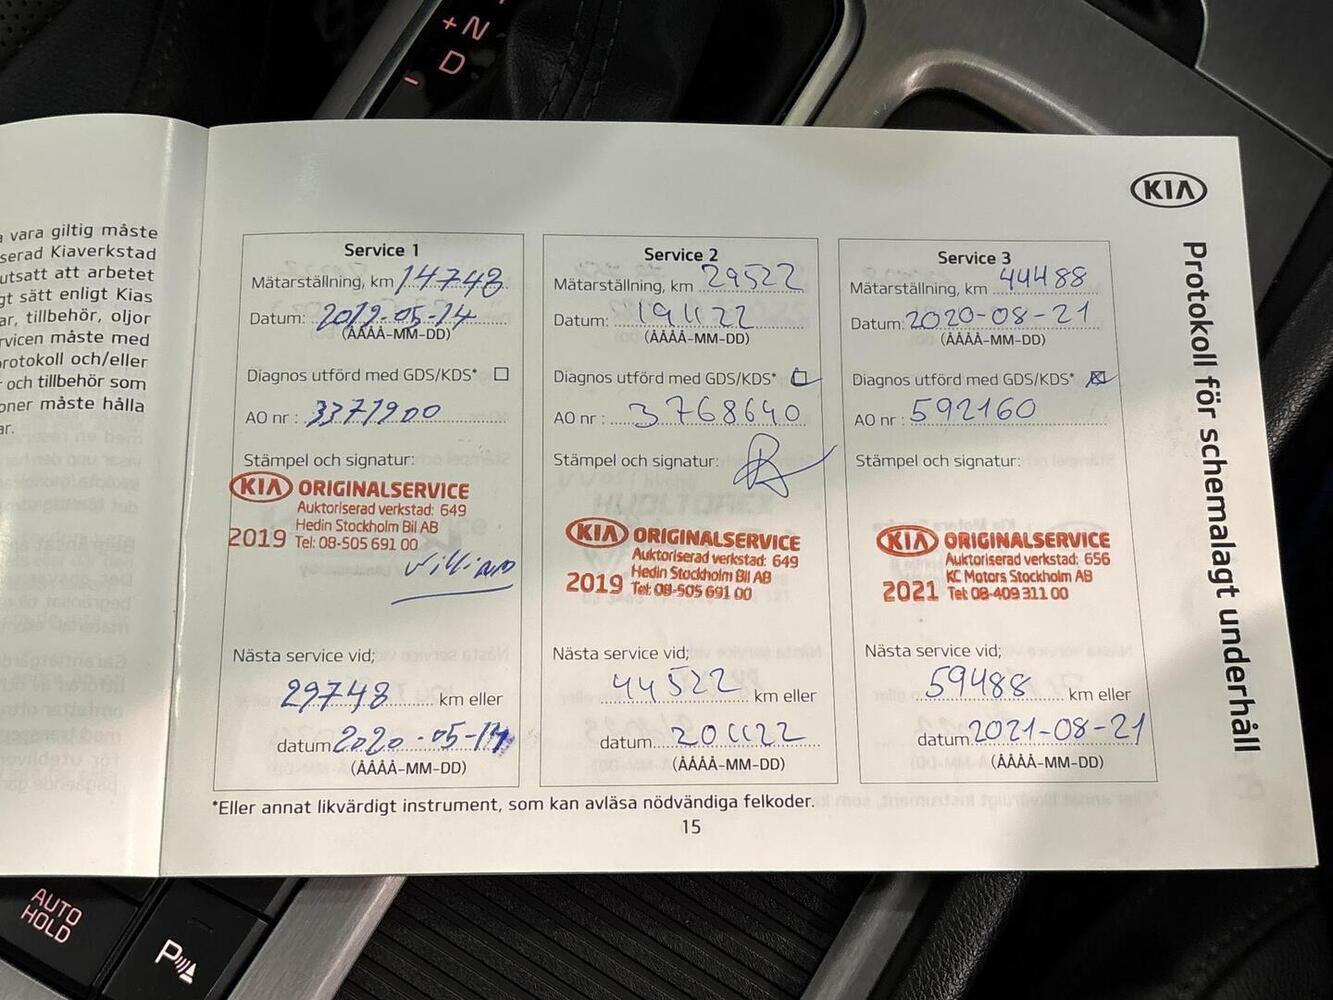 + N
D
-
KIA
Protokoll för schemalagt underhåll
vara giltig måste
serad Kiaverkstad
utsatt att arbetet
gt sätt enligt Kias
ar, tillbehör, oljor
rvicen måste med
protokoll och/eller
och tillbehör som
oner måste hålla
ar.
Service 1
Mätarställning, km 14748
Datum: 2019-05-14
(ÅÅÅÅ-MM-DD)
Diagnos utförd med GDS/KDS*
AO nr : 3371900
Stämpel och signatur:
KIA ORIGINALSERVICE
Auktoriserad verkstad: 649
Hedin Stockholm Bil AB
2019 Tel: 08-505 691 00
William
Nästa service vid;
29748 km eller
datum 2020-05-14
(ÅÅÅÅ-MM-DD)
Service 2
Mätarställning, km 29522
Datum: 191122
(ÅÅÅÅ-MM-DD)
Diagnos utförd med GDS/KDS*
AO nr : 3768640
Stämpel och signatur:
KIA ORIGINALSERVICE
Auktoriserad verkstad: 649
Hedin Stockholm Bil AB
2019 Tel: 08-505 691 00
Nästa service vid;
44522 km eller
datum 201122
(ÅÅÅÅ-MM-DD)
Service 3
Mätarställning, km 44488
Datum: 2020-08-21
(ÅÅÅÅ-MM-DD)
Diagnos utförd med GDS/KDS*
AO nr : 592160
Stämpel och signatur:
KIA ORIGINALSERVICE
Auktoriserad verkstad: 656
KC Motors Stockholm AB
2021 Tel: 08-409 311 00
Nästa service vid;
59488 km eller
datum 2021-08-21
(ÅÅÅÅ-MM-DD)
*Eller annat likvärdigt instrument, som kan avläsa nödvändiga felkoder.
15
AUTO
HOLD
P